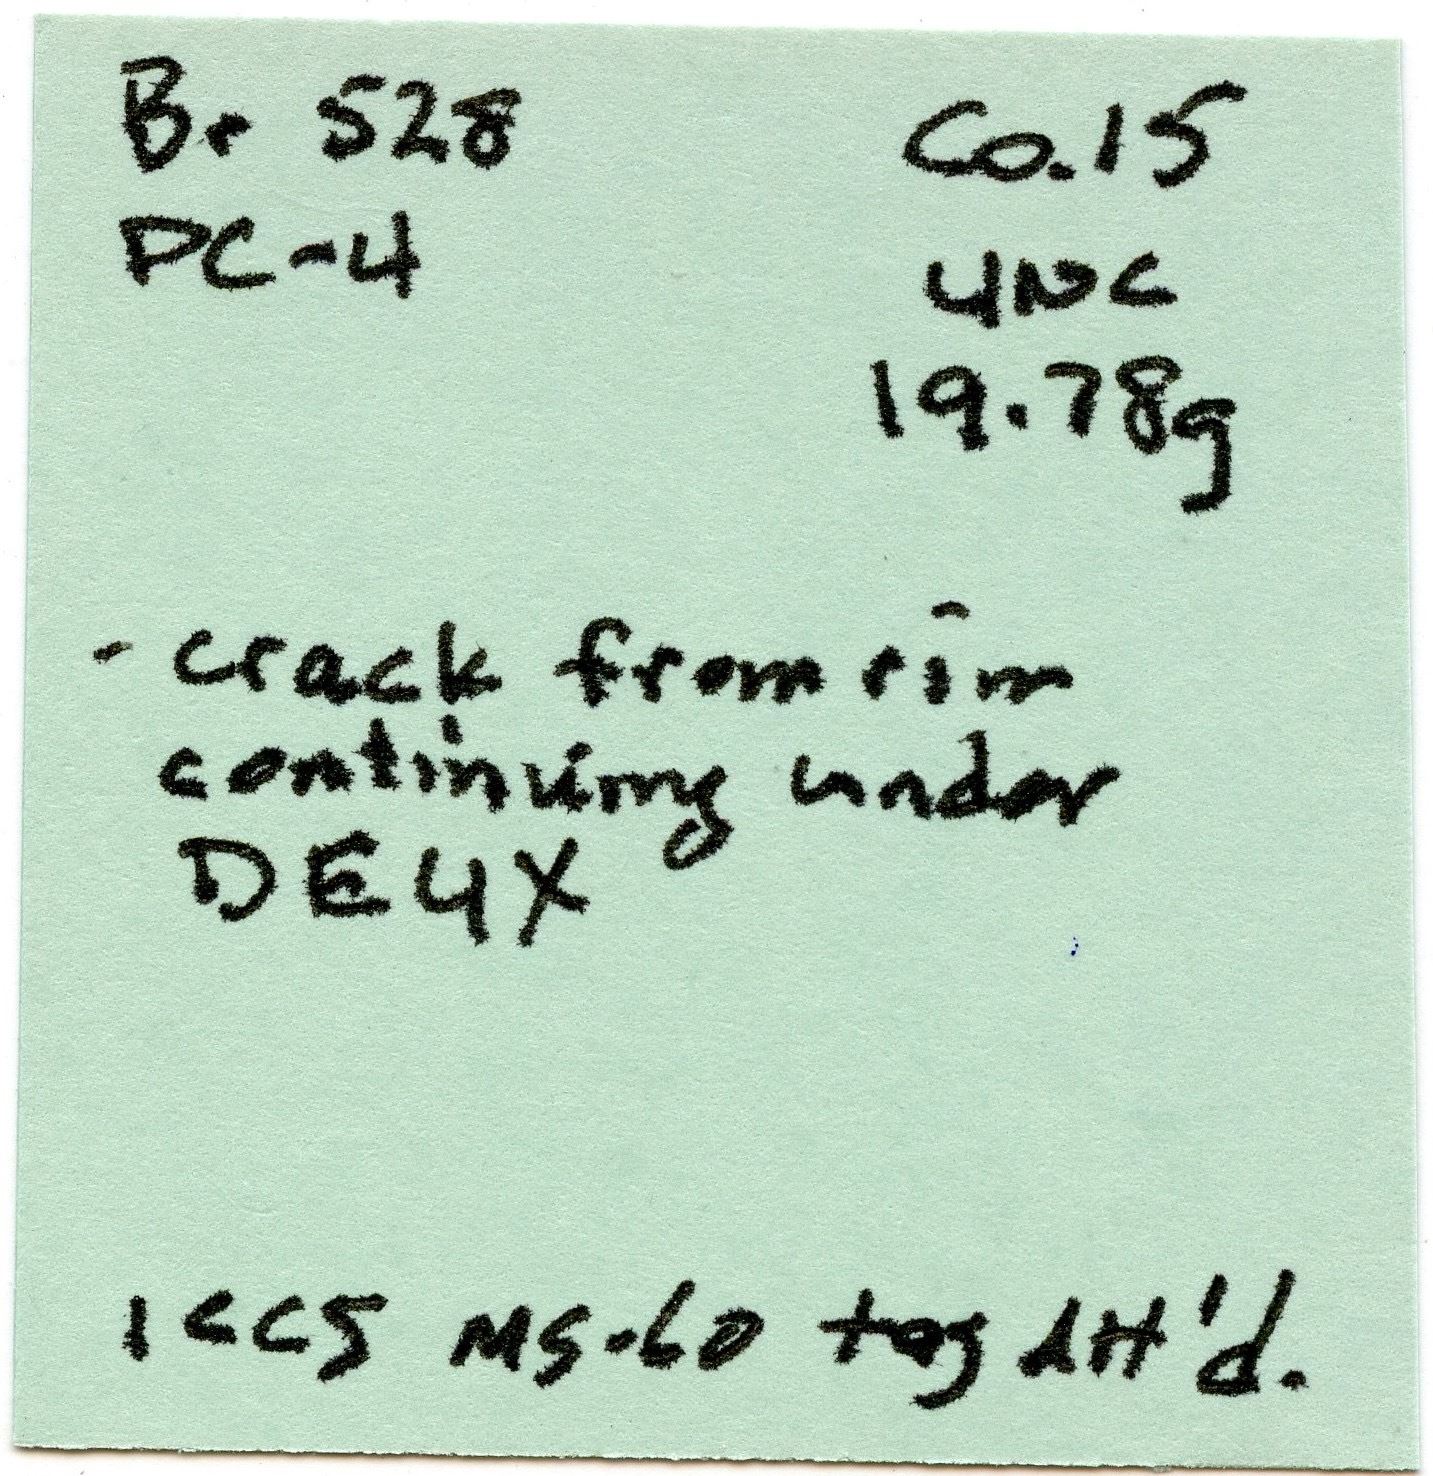 Br 528 Co.15
PC-4 UNC
19.78g
- crack from rim
continuing under
DEUX
ICCS MS-60 tag AH'd.